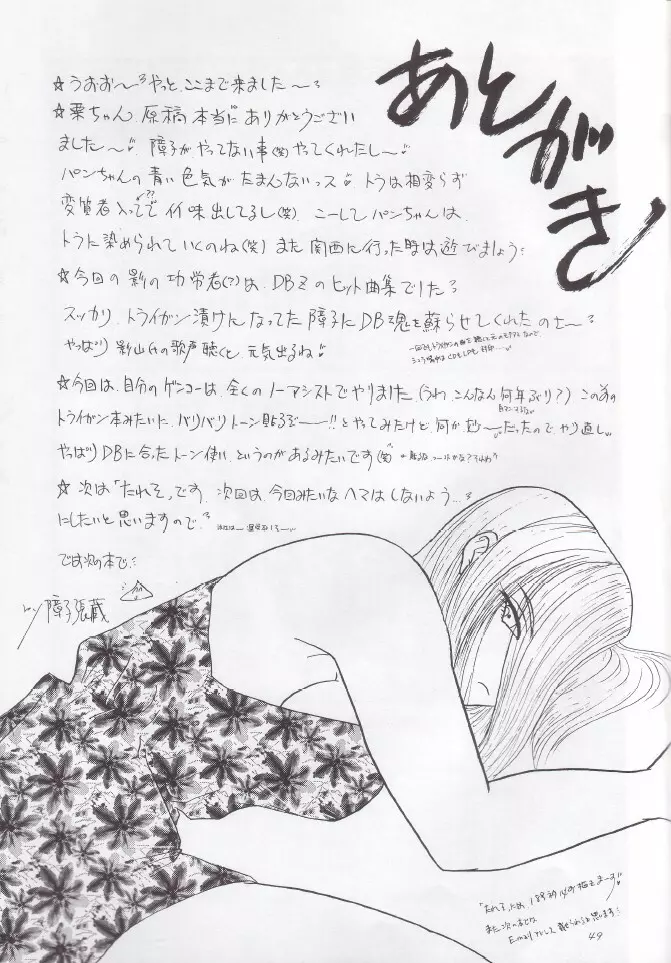 あとがき
☆うおお〜やっと、ここまで来ました〜
☆栗ちゃん、原稿本当にありがとうござい
ました〜 障子がやってない事(笑)やってくれたし〜
パンちゃんの青い色気がたまんないっス トラは相変らず
変質者入ってて イイ味出してるし(笑) こーしてパンちゃんは、
トラに染められていくのね(笑) また関西に行った時は遊びましょう
☆今回の影の功労者(?)は、DBZのヒット曲集でした
スッカリ、トライガン漬けになってた障子にDB魂を蘇らせてくれたのさ〜
やっぱり影山氏の歌声聴くと、元気出るね
☆今回は、自分のゲンコーは、全くのノーアシストでやりました(うわ、こんなん何年ぶり?) この前の
トライガン本みたいに、バリバリトーン貼るぞー!! とやってみたけど、何か妙〜だったのでやり直し
やっぱりDBに合ったトーン使い、というのがあるみたいです(笑)
☆次は「たれそ」です、次回は、今回みたいなヘマはしないよう…
にしたいと思いますので
では次の本で
障子張蔵
また次の本でな
49